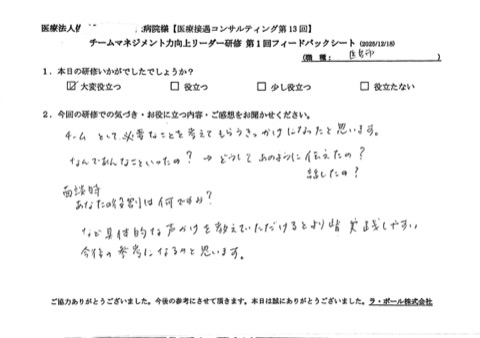 医療法人 病院様【医療接遇コンサルティング第13回】
チームマネジメント力向上リーダー研修 第1回フィードバックシート (2025/12/18)
(職種: 医局 )
1．本日の研修いかがでしたでしょうか？
☑ 大変役立つ □ 役立つ □ 少し役立つ □ 役立たない
2．今回の研修での気づき・お役に立つ内容・ご感想をお聞かせください。
チームとして必要なことを考えてもらうきっかけになったと思います。
なんであんなこといったの？ → どうしてあのように伝えたの？
話したの？
面談時
あなたの役割は何ですか？
など具体的な声かけを教えていただけるとより皆実践しやすい，
今後の参考になるのと思います。
ご協力ありがとうございました。今後の参考にさせて頂きます。本日は誠にありがとうございました。ラ・ポール株式会社